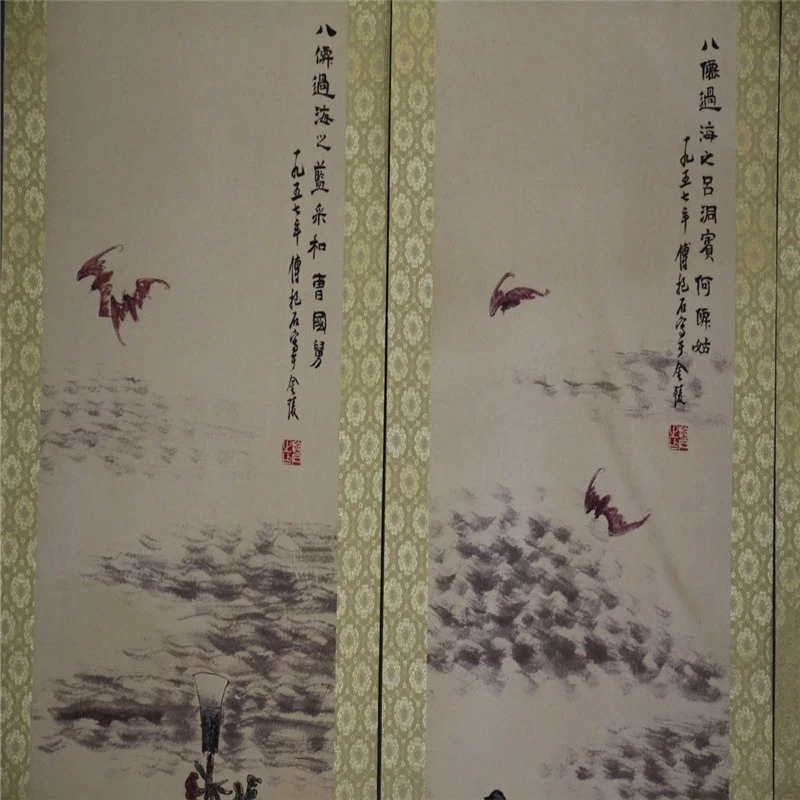 八僊過海之呂洞賓何僊姑
一九五七年傅抱石寫于金陵
八僊過海之藍采和曹國舅
一九五七年傅抱石寫于金陵